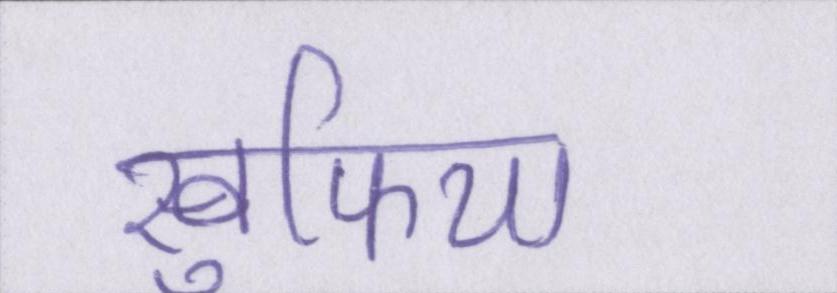 खुफिया